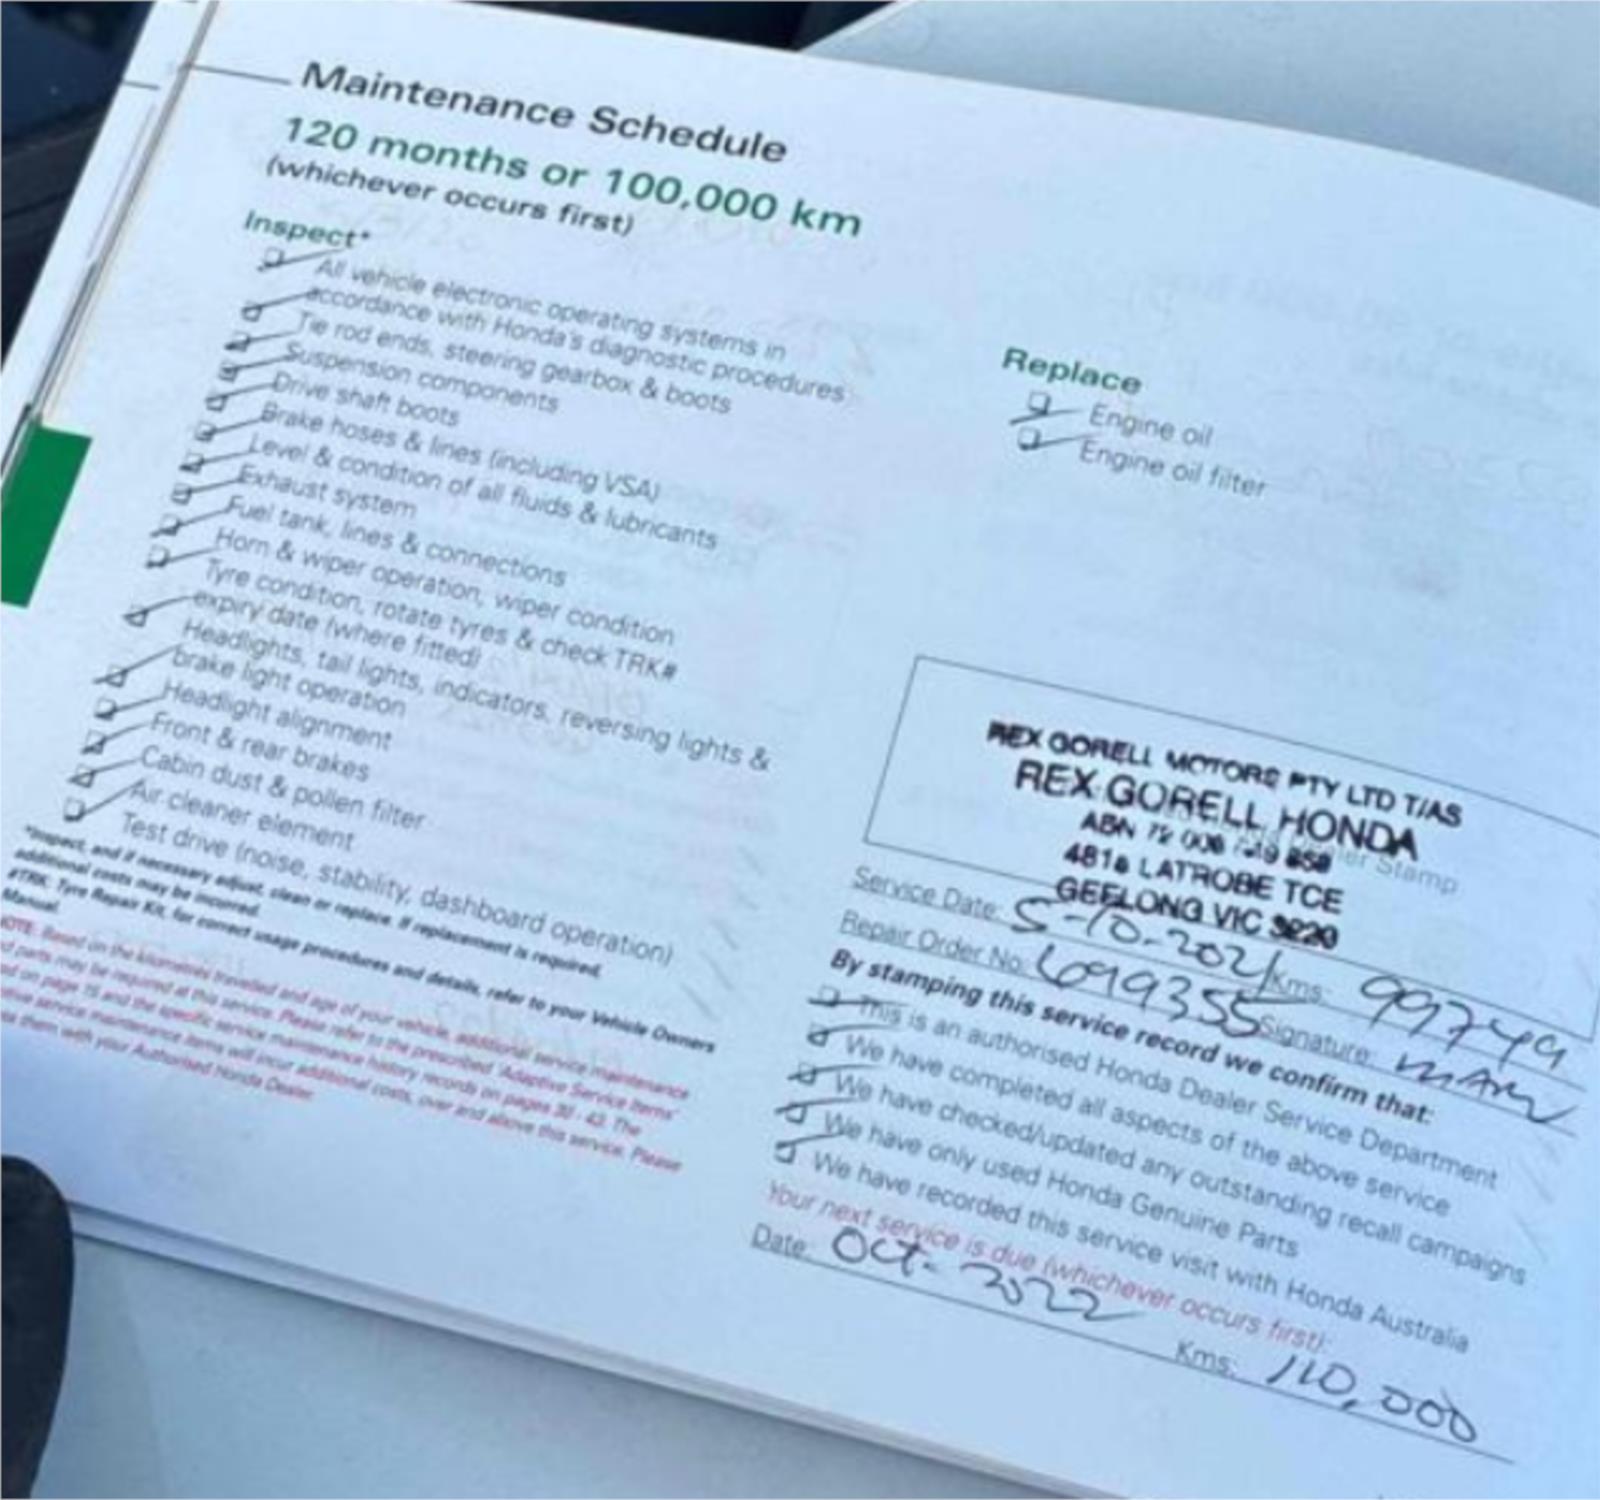 Maintenance Schedule
120 months or 100,000 km
(whichever occurs first)
Inspect*
All vehicle electronic operating systems in
accordance with Honda's diagnostic procedures
Tie rod ends, steering gearbox & boots
Suspension components
Drive shaft boots
Brake hoses & lines (including VSA)
Level & condition of all fluids & lubricants
Exhaust system
Fuel tank, lines & connections
Horn & wiper operation, wiper condition
Tyre condition, rotate tyres & check TRK#
expiry date (where fitted)
Headlights, tail lights, indicators, reversing lights &
brake light operation
Headlight alignment
Front & rear brakes
Cabin dust & pollen filter
Air cleaner element
Test drive (noise, stability, dashboard operation)
*Inspect, and if necessary adjust, clean or replace. If replacement is required,
additional costs may be incurred.
#TRK: Tyre Repair Kit, for correct usage procedures and details, refer to your Vehicle Owners
Manual.
NOTE: Based on the kilometres travelled and age of your vehicle, additional service maintenance
parts may be required at this service. Please refer to the prescribed 'Adaptive Service Items'
on page 15 and the specific service maintenance history records on pages 30 - 43. The
service maintenance items will incur additional costs, over and above this service. Please
them with your Authorised Honda Dealer.
Replace
Engine oil
Engine oil filter
REX GORELL MOTORS PTY LTD T/AS
REX GORELL HONDA
ABN 72 006
Stamp
481 LATROBE TCE
GEELONG VIC 3220
Service Date: 5-10-2021 Kms: 99749
Repair Order No: 699355 Signature:
By stamping this service record we confirm that:
This is an authorised Honda Dealer Service Department
We have completed all aspects of the above service
We have checked/updated any outstanding recall campaigns
We have only used Honda Genuine Parts
We have recorded this service visit with Honda Australia
Your next service is due (whichever occurs first):
Date: Oct- 2022 Kms: 110,000